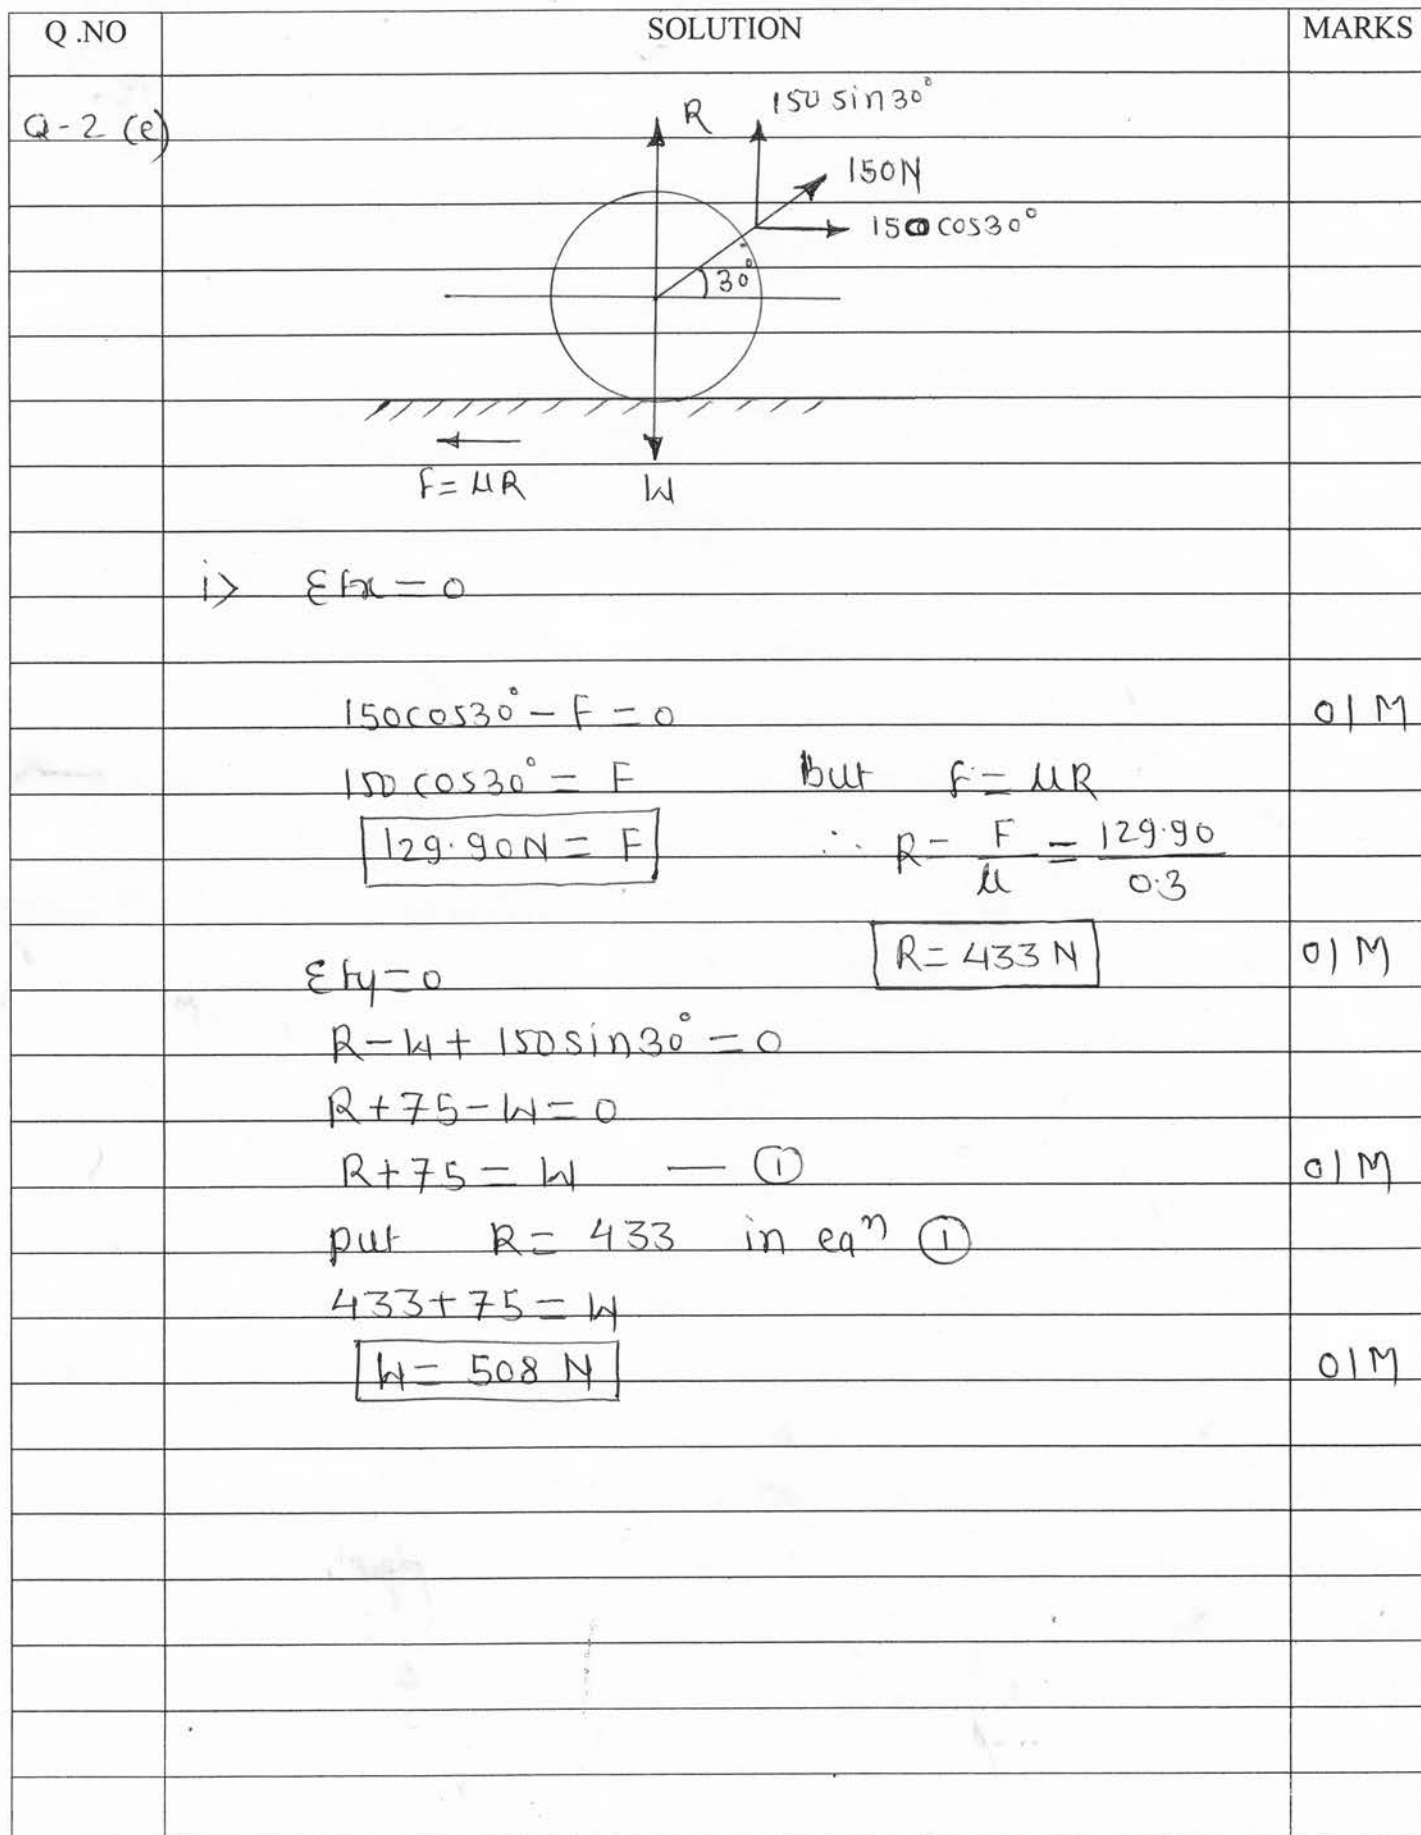 Q.NO SOLUTION MARKS
Q-2 (e)
R 150 sin30°
150N
150 cos30°
30°
F= μR W
i> Σfx = 0
150cos30° - F = 0 01 M
150 cos30° = F But F = μR
129.90N = F ∴ R = F/μ = 129.90/0.3
R= 433 N 01 M
Σfy=0
R-W+ 150sin30° = 0
R+75-W=0
R+75 = W — ① 01 M
put R= 433 in eqⁿ ①
433+75=W
W= 508 N 01M